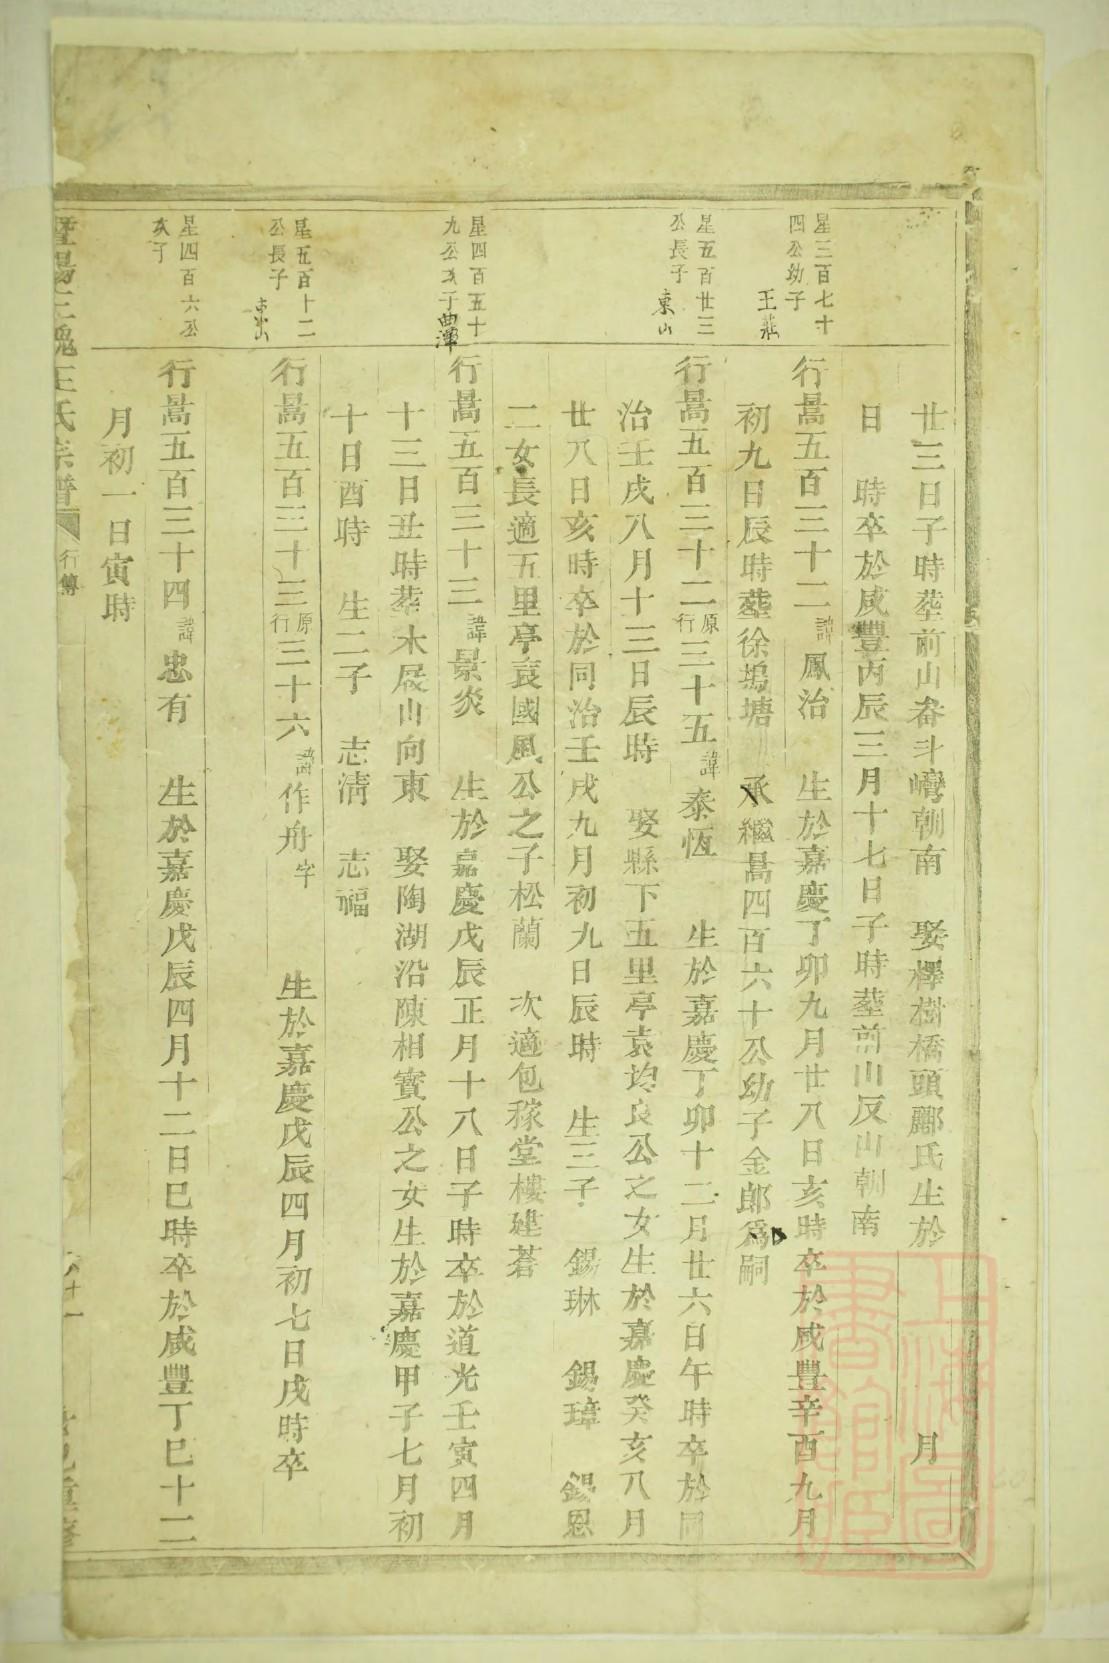 廿三日子時塟前山畚斗嶹朝南　娶檡樹橋頭酈氏生於　　月
日　時卒於咸豐丙辰三月十七日子時塟前山反山朝南
星三百七十
四公幼子
王莊
行暠五百三十一諱鳳治　生於嘉慶丁卯九月廿八日亥時卒於咸豐辛酉九月
初九日辰時塟徐塢塘　承繼暠四百六十公幼子金郎爲嗣
星五百廿三
公長子
東山
行暠五百三十二原行三十五諱泰恆　生於嘉慶丁卯十二月廿六日午時卒於同
治壬戌八月十三日辰時　娶縣下五里亭袁均良公之女生於嘉慶癸亥八月
廿八日亥時卒於同治壬戌九月初九日辰時　生三子　錫琳　錫璋　錫恩
二女長適五里亭袁國風公之子松蘭　次適包稼堂樓建蒼
星四百五十
九公次子
行暠五百三十三諱景炎　生於嘉慶戊辰正月十八日子時卒於道光壬寅四月
十三日丑時塟木展山向東　娶陶湖沿陳相寳公之女生於嘉慶甲子七月初
十日酉時　生二子　志清　志福
星五百十二
公長子
東山
行暠五百三十三原行三十六諱作舟字　生於嘉慶戊辰四月初七日戌時卒
星四百六公
次子
行暠五百三十四諱忠有　生於嘉慶戊辰四月十二日巳時卒於咸豐丁巳十二
月初一日寅時
暨陽王氏宗譜
行傳
六十一
重修